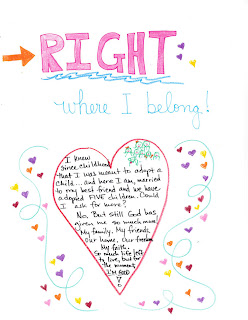 RIGHT
where I belong!
I knew
since childhood
that I was meant to adopt a
child... and here I am, married
to my best friend and we have
adopted FIVE children. Could
I ask for more?
No. But still God has
given me so much more.
My family. My friends.
Our home. Our freedom.
My faith.
So much life left
to live, but for
the moment,
I'm GOOD
!